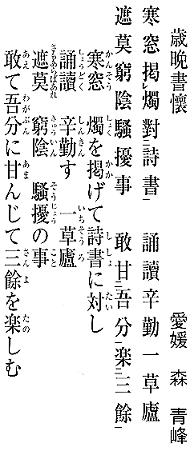 歳晩書懐　愛媛　森　青峰
寒窓掲レ燭對二詩書一　誦讀辛勤一草廬
遮莫窮陰騒擾事　敢甘二吾分一楽二三餘一
寒窓　燭を掲げて詩書に対し
かんそう　しょく　かか　ししょ　たい
誦讀　辛勤す　一草廬
しょうどく　しんきん　いちそうろ
遮莫　窮陰　騒擾の事
さもあらばあれ　きゅういん　そうじょう　こと
敢て吾分に甘んじて三餘を楽しむ
あえ　わがぶん　あま　さんよ　たの